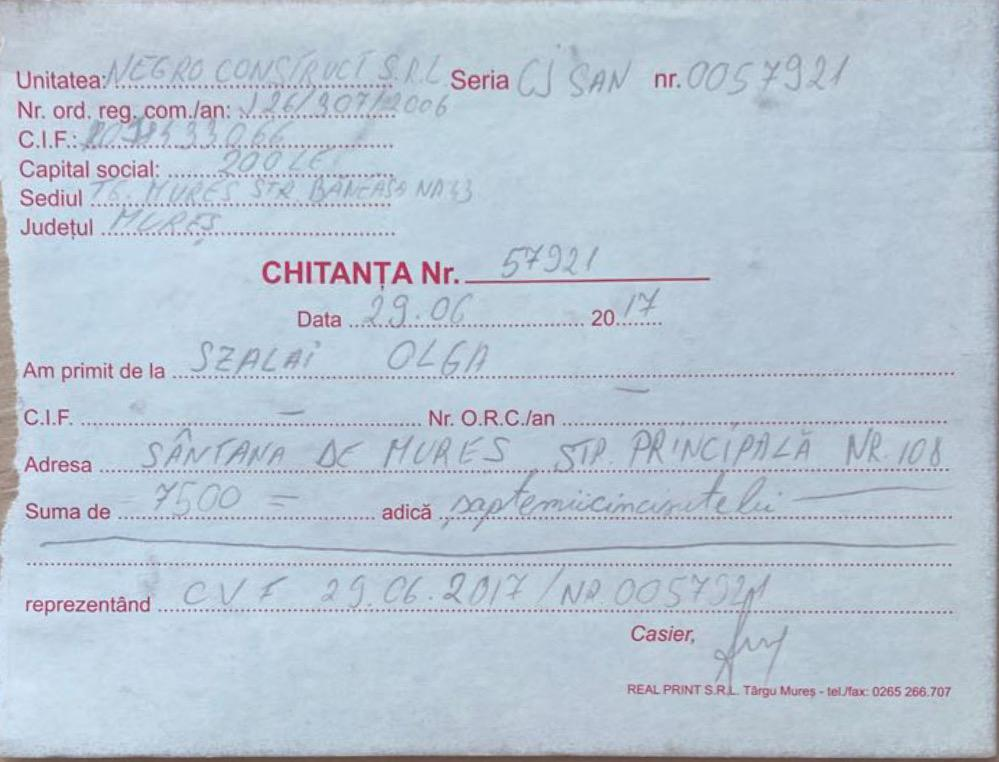 Unitatea: NEGRO CONSTRUCT S.R.L Seria CJ SAN nr. 0057921
Nr. ord. reg. com./an: J26/307/2006
C.I.F.:
Capital social: 200 LEI
Sediul TG. MUREȘ STR. BĂNEASA NR 43
Județul MUREȘ
CHITANȚA Nr. 57921
Data 29.06 2017
Am primit de la SZALAI OLGA
C.I.F. – Nr. O.R.C./an –
Adresa SÂNTANA DE MUREȘ, STR. PRINCIPALĂ NR. 108
Suma de = 7500 = adică șaptemiicincisutelei
reprezentând CVF 29.06.2017 / NR. 0057921
Casier,
REAL PRINT S.R.L. Târgu Mureș - tel./fax: 0265 266.707